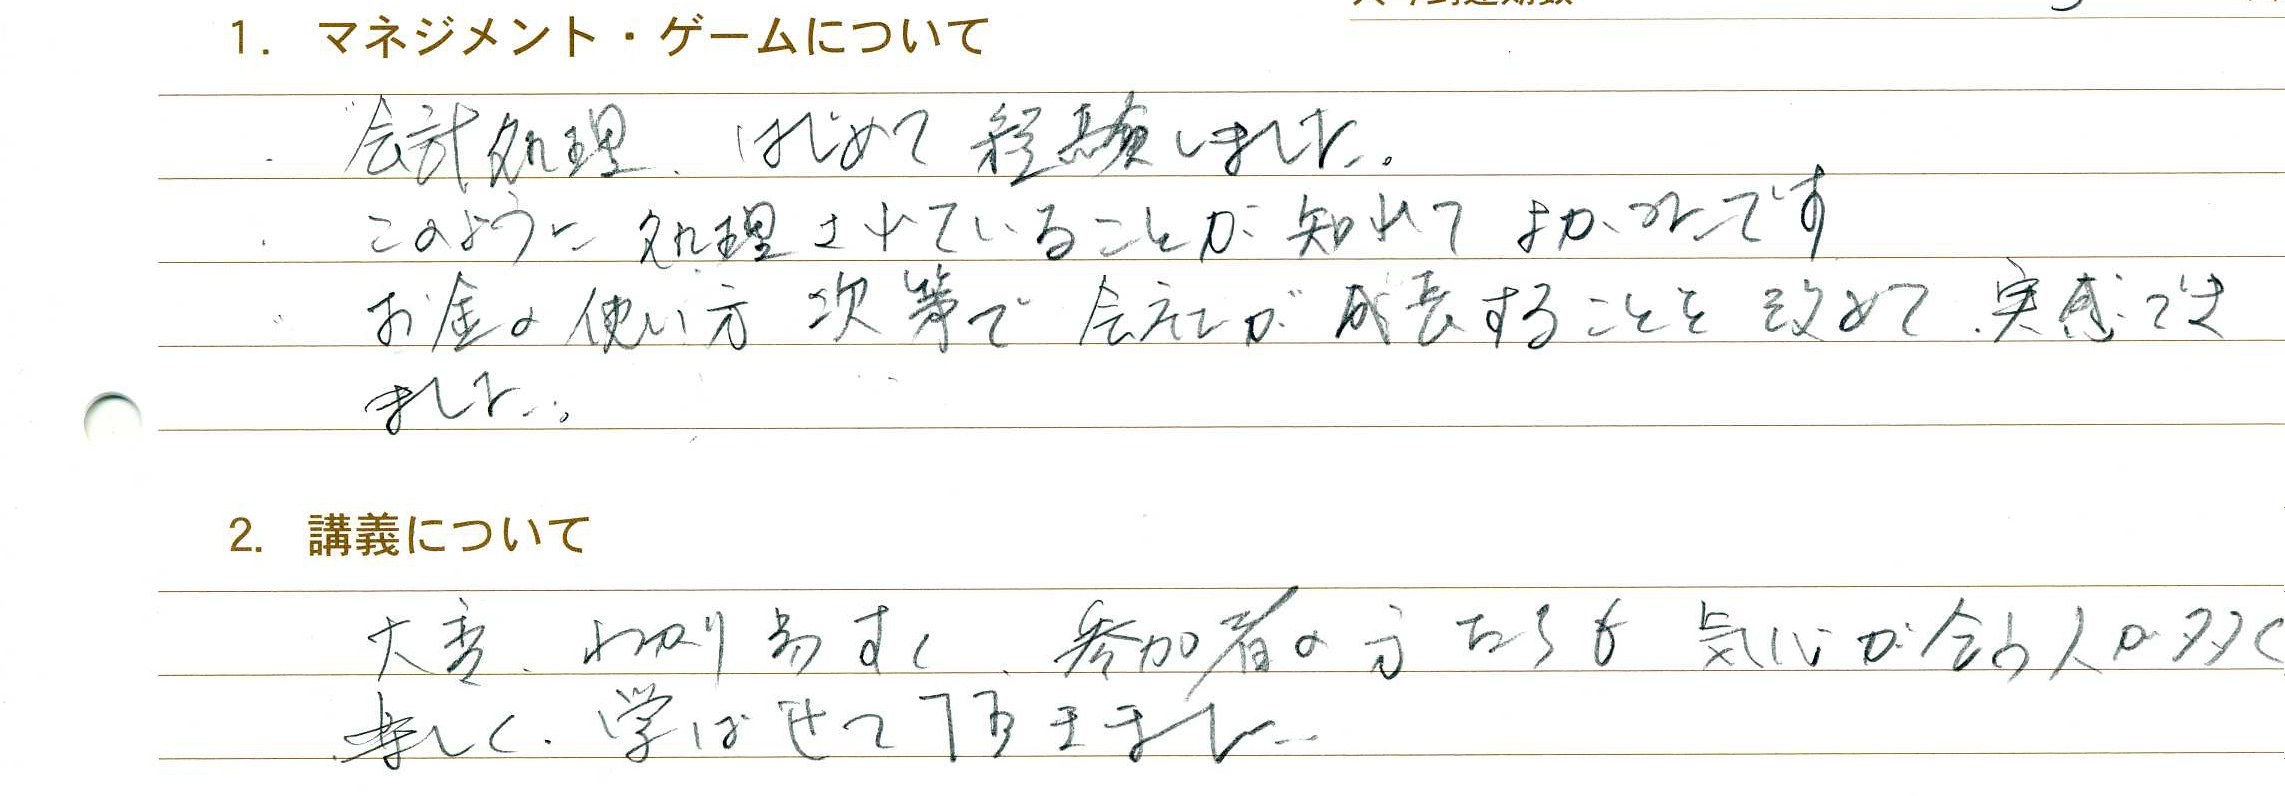 1. マネジメント・ゲームについて
会計処理、はじめて経験しました。
このように処理されていることが知れてよかったです
お金の使い方次第で会社が成長することを改めて実感でき
ました。
2. 講義について
大変、わかり易すく、参加者の方たちも気心が会う人が多く
楽しく、学ばせて頂きました